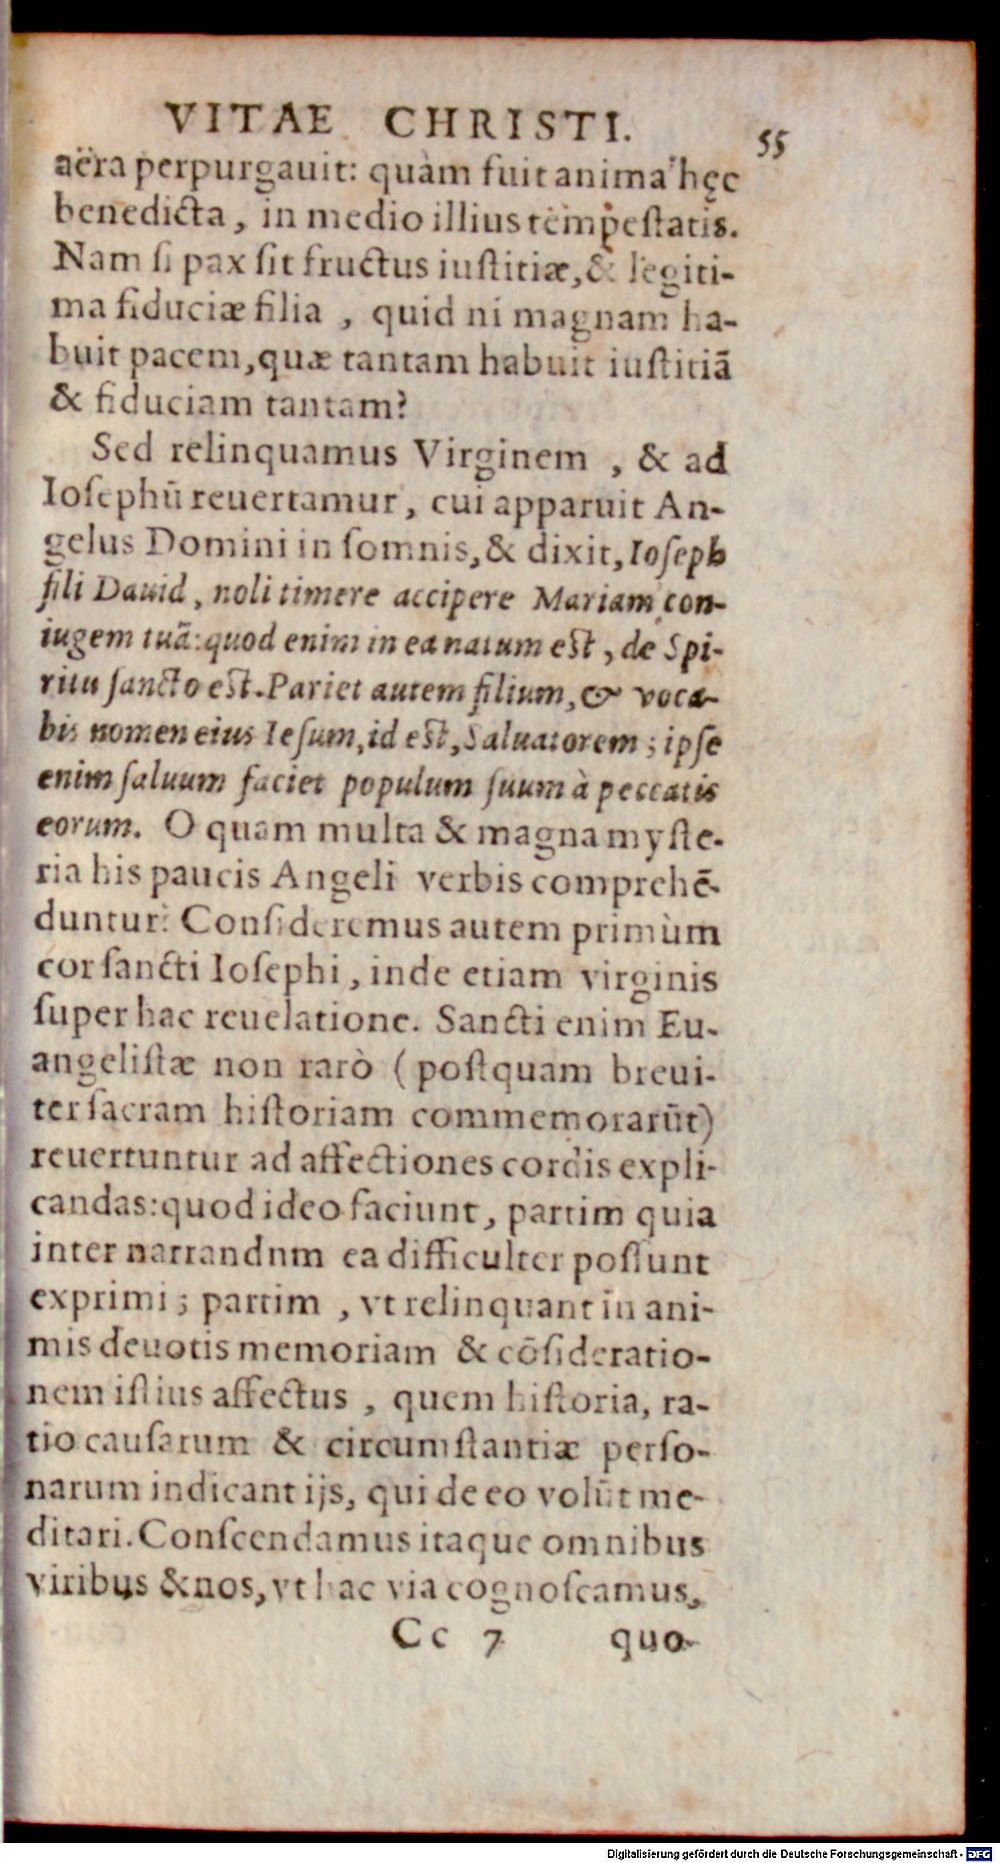 VITAE CHRISTI. 55
aëra perpurgauit: quàm fuit anima hęc
benedicta, in medio illius tempestatis.
Nam si pax sit fructus iustitiæ, & legiti-
ma fiduciæ filia , quid ni magnam ha-
buit pacem, quæ tantam habuit iustitiã
& fiduciam tantam?
Sed relinquamus Virginem , & ad
Iosephũ reuertamur, cui apparuit An-
gelus Domini in somnis, & dixit, Ioseph
fili Dauid, noli timere accipere Mariam con-
iugem tuã: quod enim in ea natum est, de Spi-
ritu sancto est. Pariet autem filium, & voca-
bis nomen eius Iesum, id est, Saluatorem; ipse
enim saluum faciet populum suum à peccatis
eorum. O quam multa & magna myste-
ria his paucis Angeli verbis comprehẽ-
duntur: Consideremus autem primùm
cor sancti Iosephi, inde etiam virginis
super hac reuelatione. Sancti enim Eu-
angelistæ non rarò (postquam breui-
ter sacram historiam commemorarũt)
reuertuntur ad affectiones cordis expli-
candas: quod ideo faciunt, partim quia
inter narrandnm ea difficulter possunt
exprimi; partim , vt relinquant in ani-
mis deuotis memoriam & cõsideratio-
nem istius affectus , quem historia, ra-
tio causarum & circumstantiæ perso-
narum indicant ijs, qui de eo volũt me-
ditari. Conscendamus itaque omnibus
viribus & nos, vt hac via cognoscamus,
Cc 7 quo-
Digitalisierung gefördert durch die Deutsche Forschungsgemeinschaft - DFG